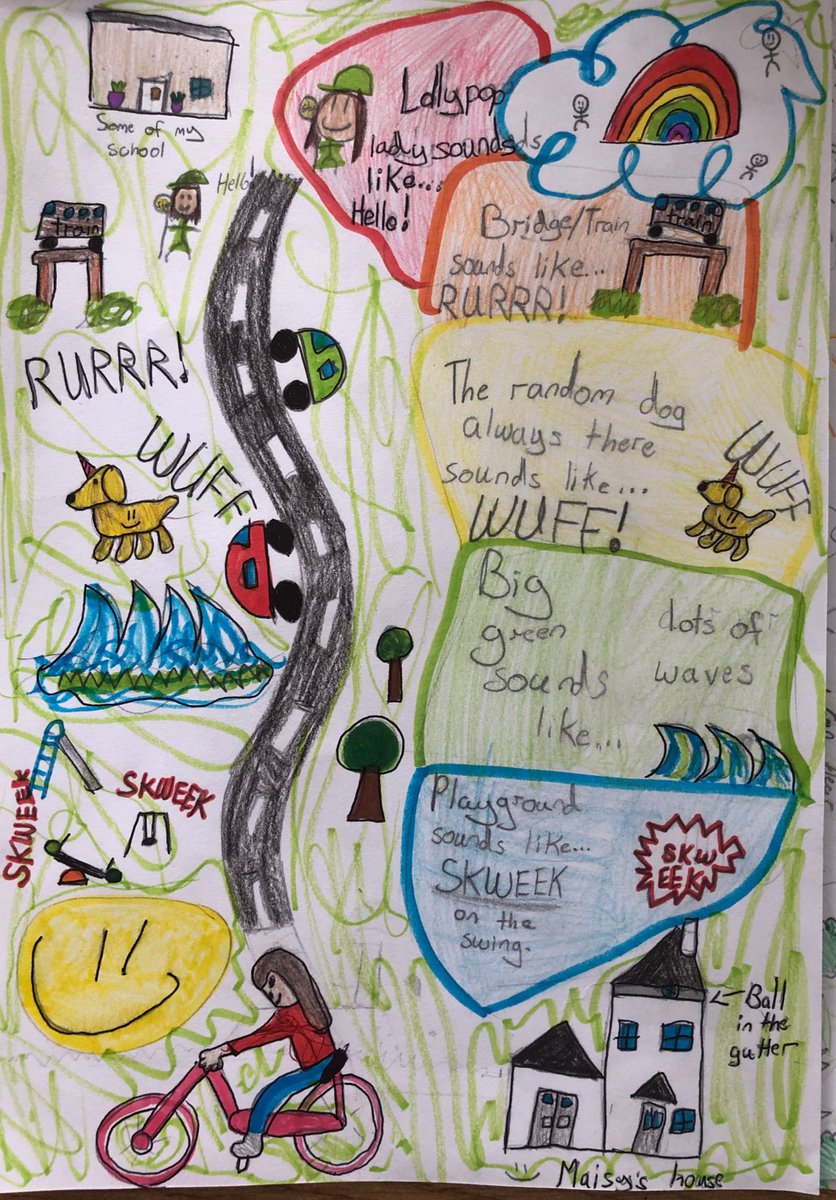 Some of my
school
Hello!
train
RURRR!
WUFF
SKWEEK
SKWEEK
Lollypop
lady sounds
like...
Hello!
Bridge/Train
sounds like...
RURRR!
train
The random dog
always there
sounds like...
WUFF!
WUFF
Big
green dots of
sounds waves
like....
Playground
sounds like...
SKWEEK
on the
swing.
SKW
EEK
Ball
in the
gutter
Maisey's house